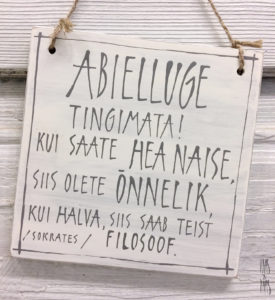 ABIELLUGE
TINGIMATA!
KUI SAATE HEA NAISE,
SIIS OLETE ÕNNELIK,
KUI HALVA, SIIS SAAB TEIST
/SOKRATES/ FILOSOOF.